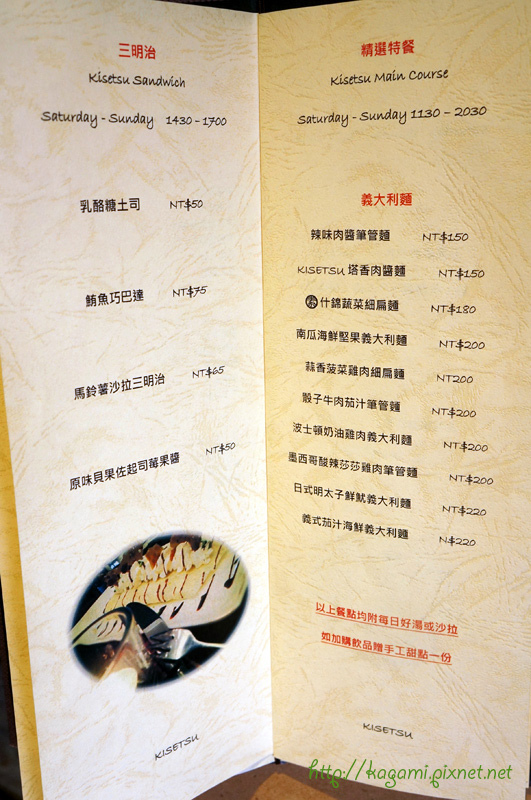 三明治
Kisetsu Sandwich
Saturday - Sunday 1430 - 1700
乳酪糖土司 NT$50
鮪魚巧巴達 NT$75
馬鈴薯沙拉三明治 NT$65
原味貝果佐起司莓果醬 NT$50
KISETSU
精選特餐
Kisetsu Main Course
Saturday - Sunday 1130 - 2030
義大利麵
辣味肉醬筆管麵 NT$150
KISETSU 塔香肉醬麵 NT$150
什錦蔬菜細扁麵 NT$180
南瓜海鮮堅果義大利麵 NT$200
蒜香菠菜雞肉細扁麵 NT200
骰子牛肉茄汁筆管麵 NT$200
波士頓奶油雞肉義大利麵 NT$200
墨西哥酸辣莎莎雞肉筆管麵 NT$200
日式明太子鮮魷義大利麵 NT$220
義式茄汁海鮮義大利麵 N$220
以上餐點均附每日好湯或沙拉
如加購飲品贈手工甜點一份
KISETSU
http://kagami.pixnet.net